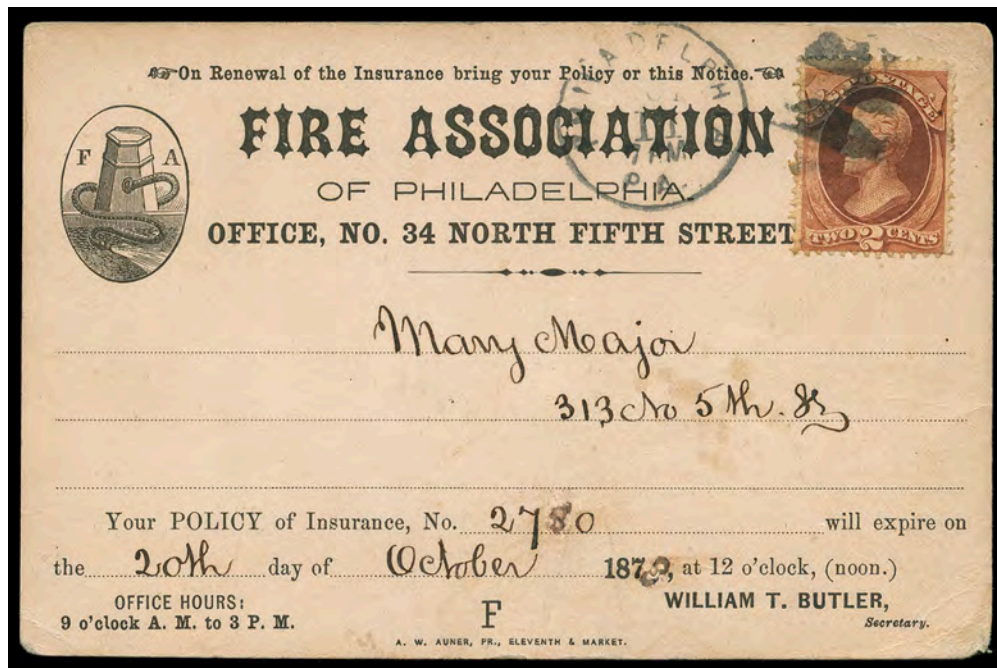 On Renewal of the Insurance bring your Policy or this Notice.
FIRE ASSOCIATION
F A
OF PHILADELPHIA.
OFFICE, NO. 34 NORTH FIFTH STREET
PHILADELPHIA
7 AM
PA.
TWO 2 CENTS
Mary Major
313 No 5th. St
Your POLICY of Insurance, No. 2780 will expire on
the 20th day of October 187 , at 12 o'clock, (noon.)
OFFICE HOURS:
9 o'clock A. M. to 3 P. M.
F
WILLIAM T. BUTLER,
Secretary.
A. W. AUNER, PR., ELEVENTH & MARKET.